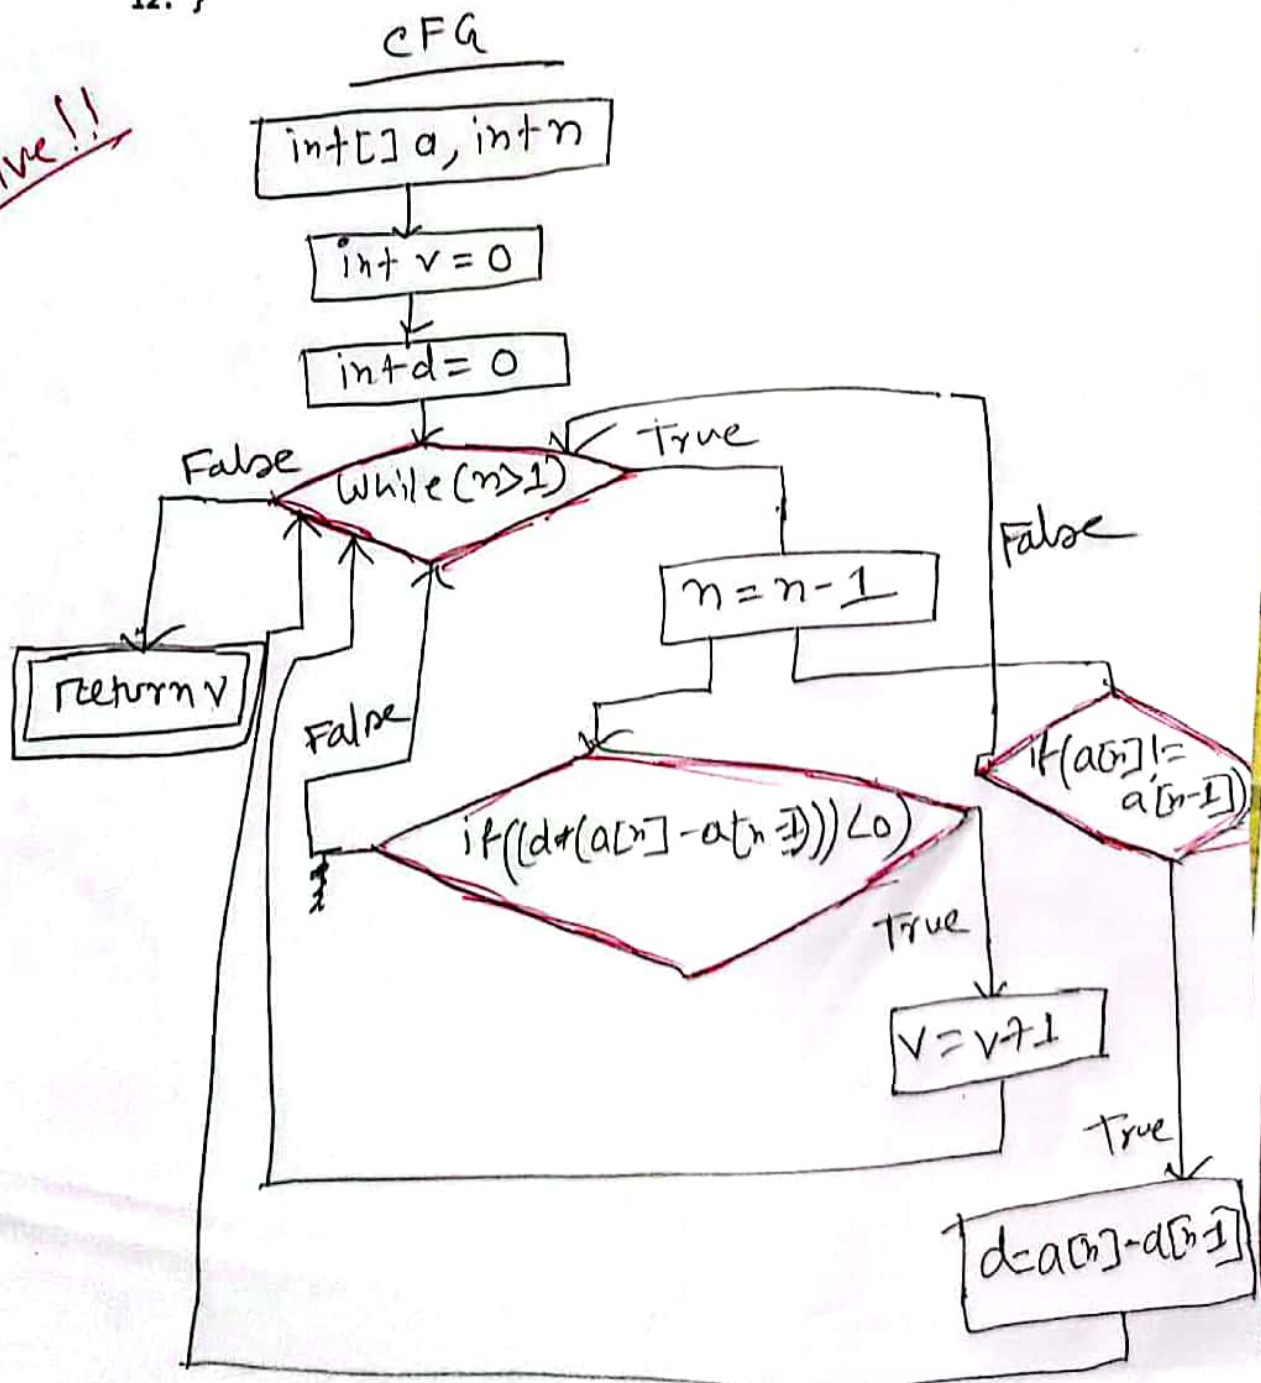 12. }
CFG
int[] a, int n
int v = 0
int d = 0
False
While (n>1)
True
False
n = n - 1
return v
False
if(a[n]!=
a[n-1])
if((d*(a[n]-a[n-1]))<0)
True
v = v+1
True
d=a[n]-a[n-1]